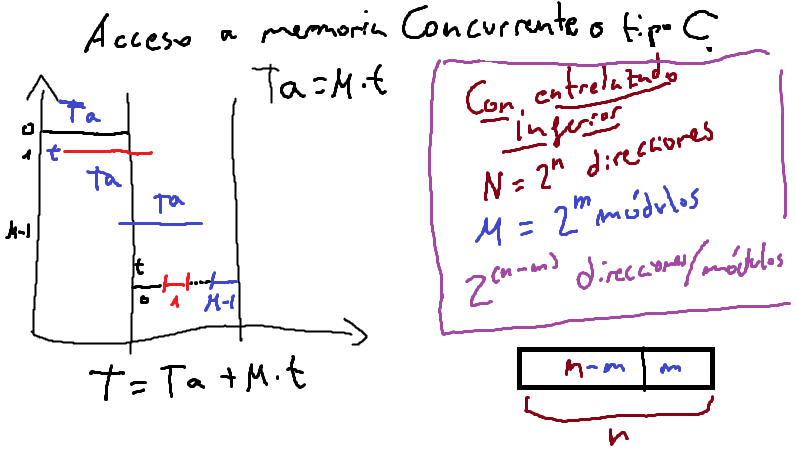 Acceso a memoria Concurrente o tipo C
Ta = M·t
Ta
0
1
t
Ta
Ta
M-1
t
0
1
M-1
T = Ta + M·t
Con entrelazado
inferior
N = 2^n direcciones
M = 2^m módulos
2^(n-m) direcciones/módulos
n-m
m
n